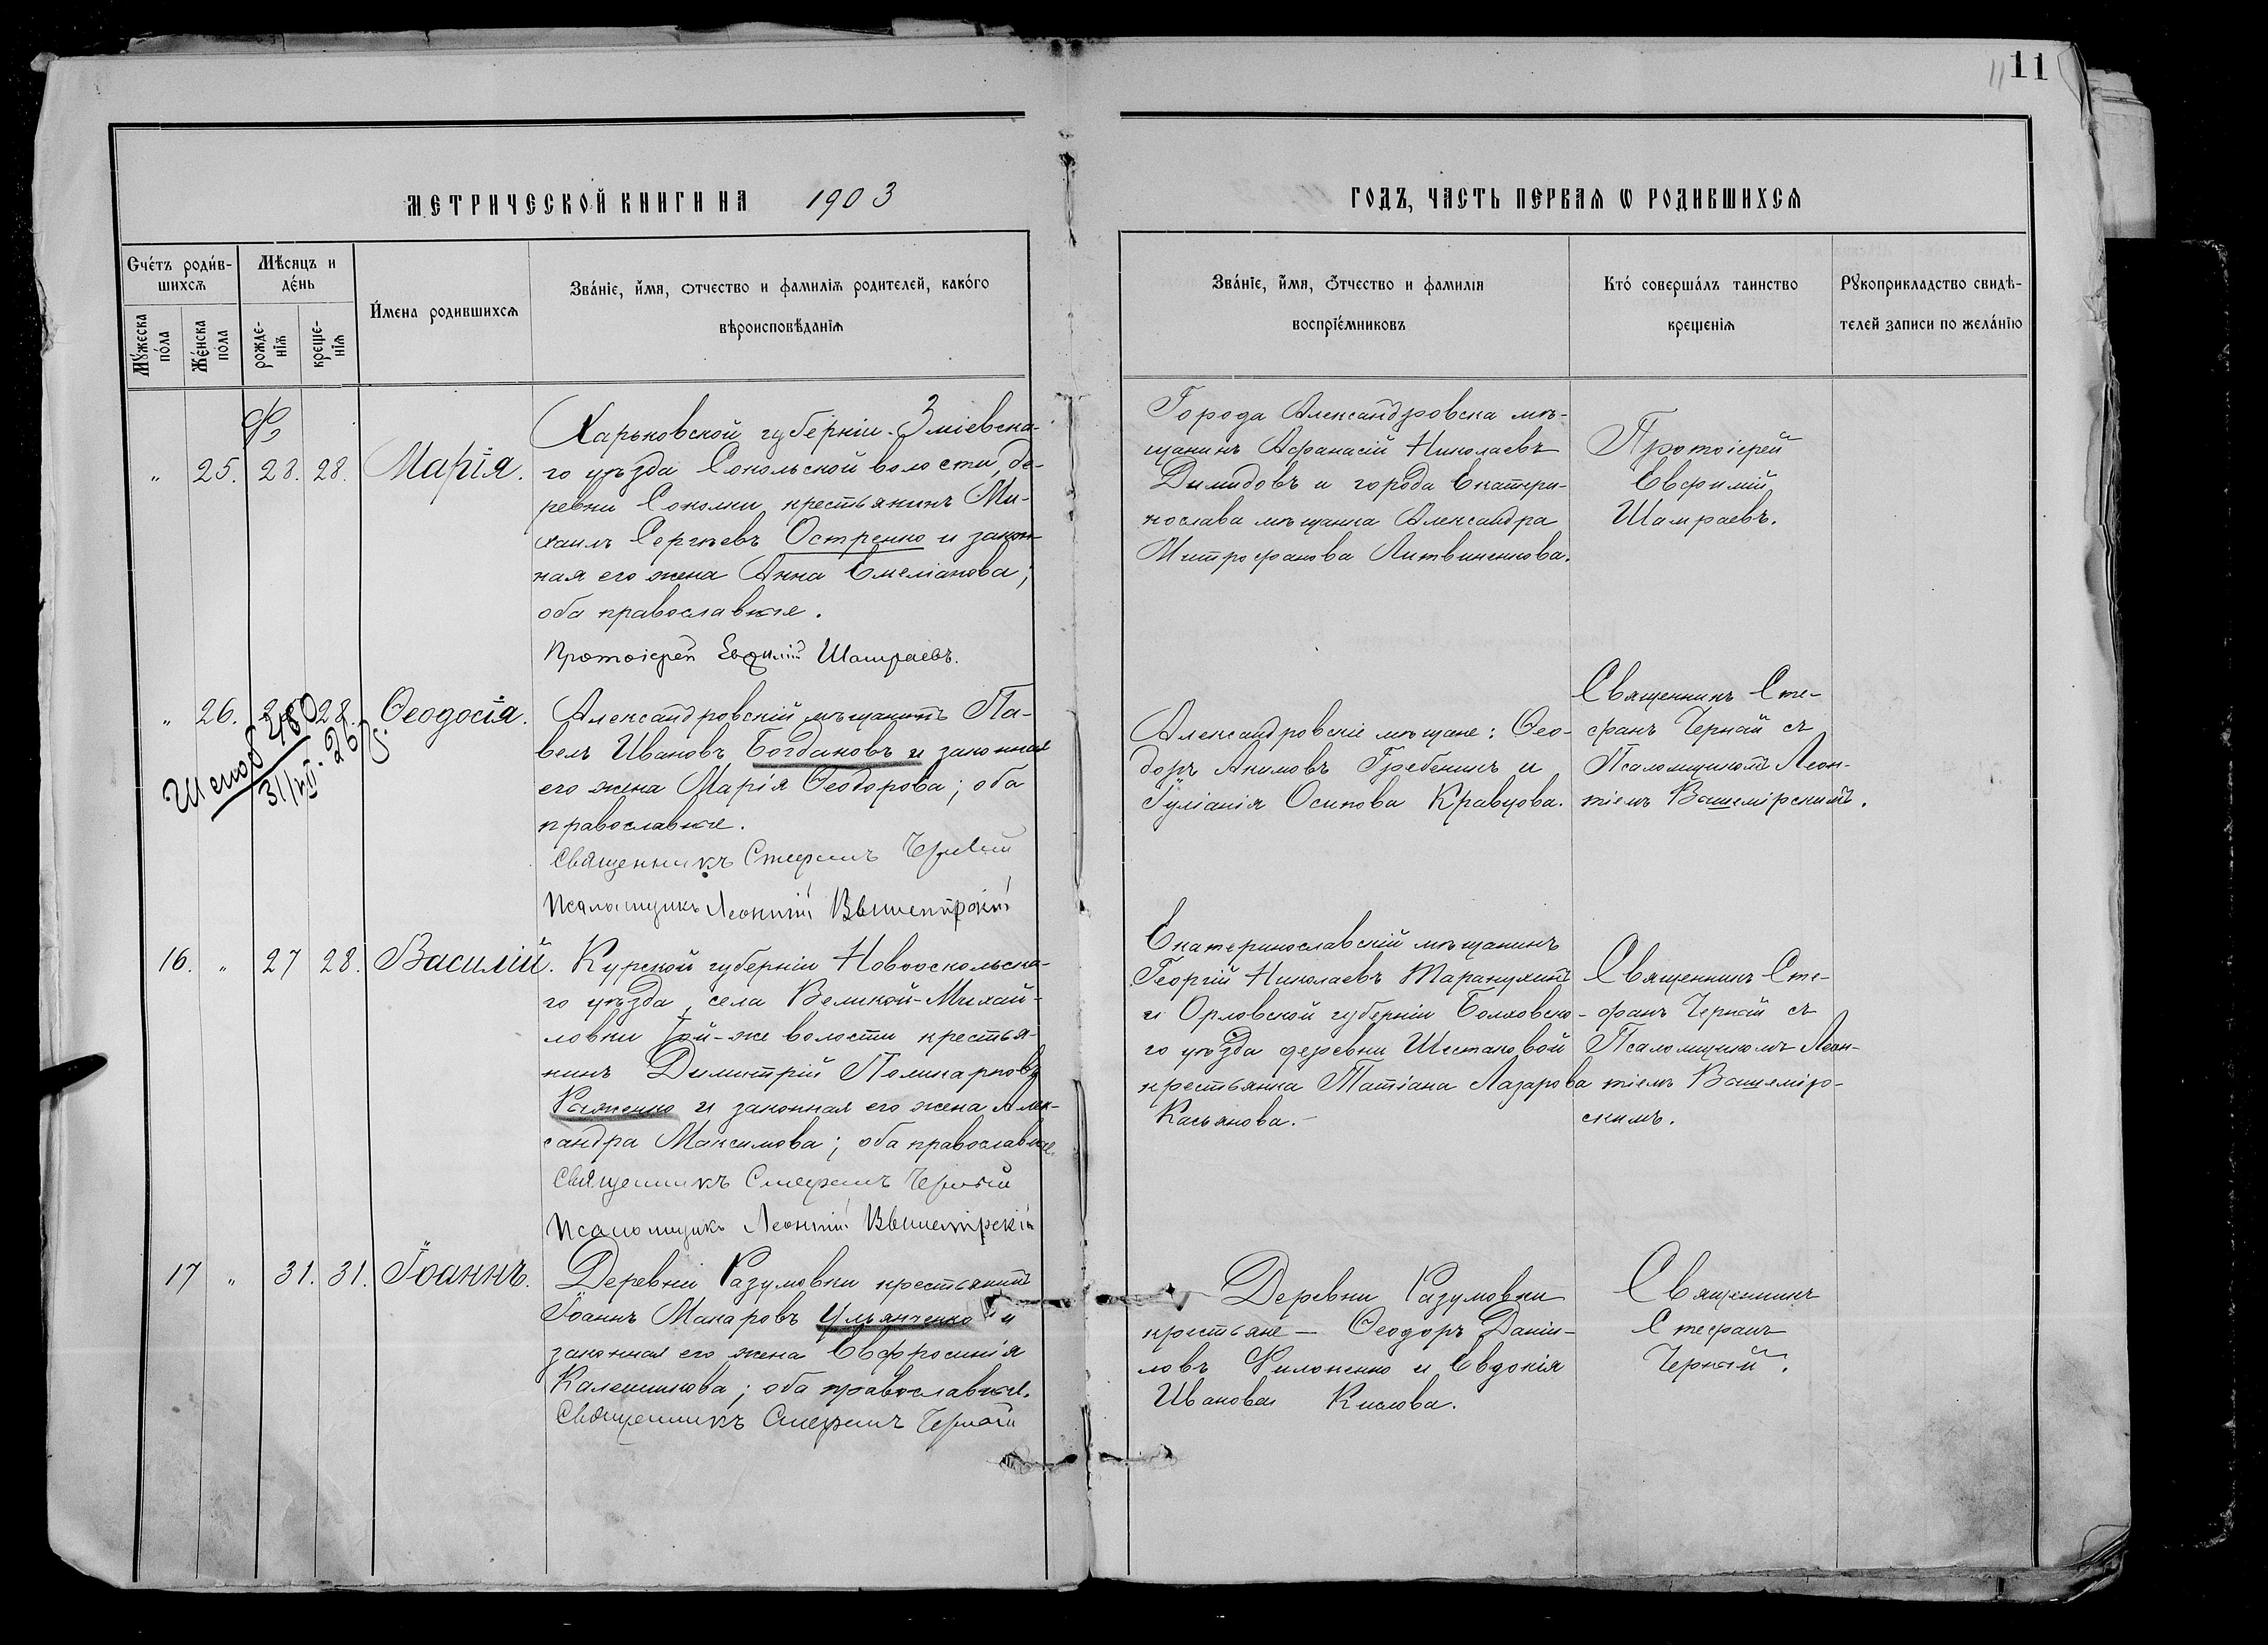 11
11
МЕТРИЧЕСКОЙ КНИГИ НА 1903
ГОДЪ, ЧАСТЬ ПЕРВАѦ Ѡ РОДИВШИХСѦ
Счéтъ роди́в-
шихсѧ
Мꙋ́жеска
по́ла
Же́нска
пола
Мѣ́сяцъ и
де́нь
рожде-
нїѧ
креще-
нїѧ
И́мена родившихсѧ
Зва́нїе, и́мя, ѻтчество и фамилїѧ родителей, како́го
вѣроисповѣ́данїѧ
Зва́нїе, и́мя, ѻ́тчество и фамилїя
воспрїе́мниковъ
Кто́ соверша́лъ таинство
крещенїѧ
Рꙋкоприкладство свидѣ-
телей записи по жела́нїю
„ 25. 28. 28. Марія.
Харьковской губерніи Зміевска-
го уѣзда Сокольской волости, де-
ревни Соколки крестьянинъ Ми-
хаилъ Сергѣевъ Остренко и закон-
ная его жена Анна Емеліанова;
оба православные.
Протоіерей Евфимій Шамраевъ.
Города Александровска мѣ-
щанинъ Афанасій Николаевъ
Димидовъ и города Екатери-
нослава мѣщанка Александра
Митрофанова Литвиненкова.
Протоіерей
Евфимій
Шамраевъ.
„ 26. 28. Ѳеодосія.
480
31/VII
Александровскій мѣщанинъ Па-
велъ Ивановъ Богдановъ и законная
его жена Марія Ѳеодорова; оба
православные.
Священникъ Стефанъ Черный
Псаломщикъ Леонтій Вышемірскій
Александровскіе мѣщане: Ѳео-
доръ Акимовъ Гребеникъ и
Іуліанія Осипова Кравцова.
Священникъ Сте-
фанъ Черный съ
Псаломщикомъ Леон-
тіемъ Вышемірскимъ.
16. „ 27 28. Василій.
Курской губерніи Новооскольска-
го уѣзда, села Великой-Михай-
ловки той-же волости крестья-
нинъ Димитрій Поликарповъ
и законная его жена Алек-
сандра Максимова; оба православные.
Священникъ Стефанъ Черный
Псаломщикъ Леонтій Вышемірскій
Екатеринославскій мѣщанинъ
Георгій Николаевъ Таранухинъ
и Орловской губерніи Болховско-
го уѣзда деревни Шестаковой
крестьянка Татіана Лазарова
Касьянова.-
Священникъ Сте-
фанъ Черный съ
Псаломщикомъ Леон-
тіемъ Вышемір-
скимъ.
17 „ 31. 31. Іоаннъ.
Деревни Разумовки крестьянинъ
Іоаннъ Макаровъ Ульянченко и
законная его жена Евфросинія
Калешикова; оба православные.
Священникъ Стефанъ Черный
Деревни Разумовки
крестьяне — Ѳеодоръ Даніи-
ловъ Филоненко и Евдокія
Иванова Кислова.
Священникъ
Стефанъ
Черный.